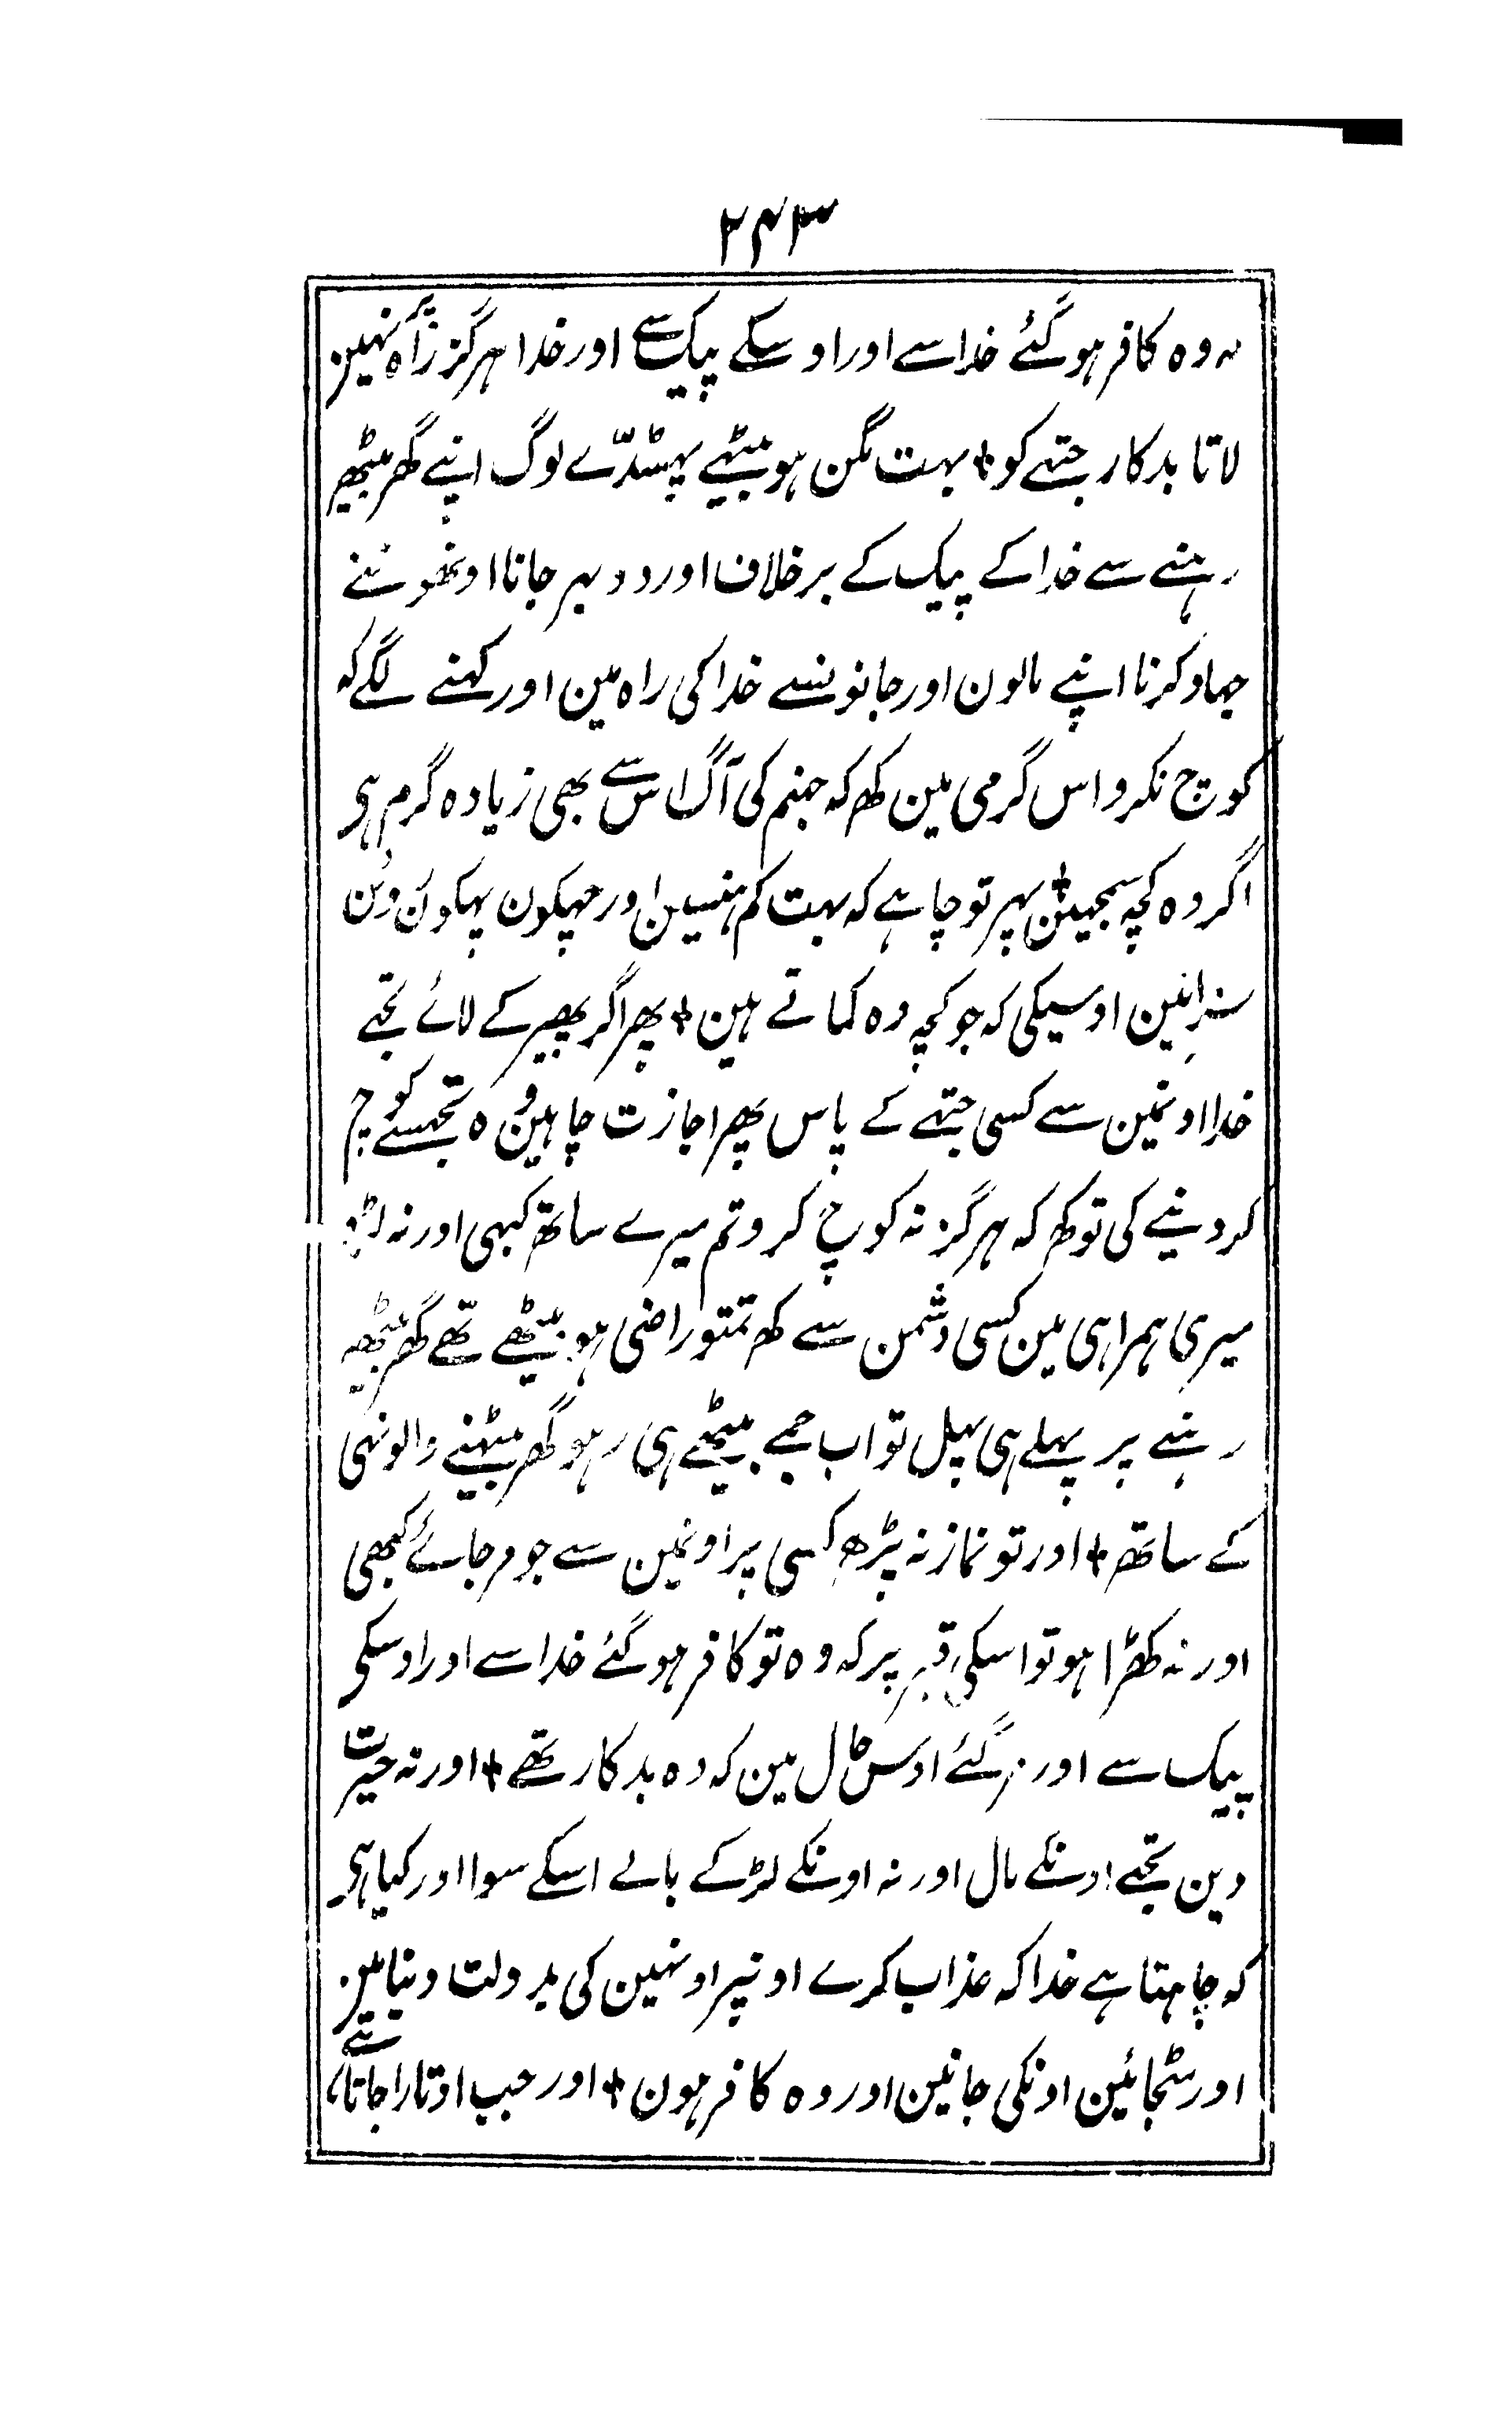 ۲۴۳
کہ وہ کافر ہوگئے خدا سے اور اوسکے پیک سے اور خدا ہرگز راہ پر نہین
لاتا بدکار جتہے کو + بہت مگن ہو بیٹہے پہسڈّے لوگ اپنے گھر بیٹھ
رہنے سے خدا کے پیک کے برخلاف اور دوبہر جانا اونھونے
جہاد کرنا اپنے مالون اور جانونسے خدا کی راہ مین اور کہنے لگے کہ
کوچ نکرو اس گرمی مین کھ کہ جہنم کی آگ اس سے بھی زیادہ گرم ہی
اگر وہ کچہ سمجہین + پہر تو چاہے کہ بہت کم ہنسین اور پہکون پہکون روئن
سزا مین اوسیکی کہ جو کچہ وہ کماتے ہین + پھر اگر پھیر کے لائے تجہے
خدا اونمین سے کسی جتہے کے پاس پھر اجازت چاہین وہ تجھسے کوچ
کر دینے کی تو کھ کہ ہرگز نہ کوچ کرو تم میرے ساتھ کبہی اور نہ لڑو
میری ہمراہی مین کسی دشمن سے کھ تمتو راضی ہو بیٹھے تھے گھر بیٹھ
رہنے پر پہلے ہی پہل تو اب جمے بیٹھے ہی رہو گھر بیٹہنے والونہی
کے ساتھ + اور تو نماز نہ پڑھ کسی پر اونمین سے جو مرجائے کبھی
اور نہ کھڑا ہو تو اسکی قبر پر کہ وہ تو کافر ہوگئے خدا سے اور اوسکی
پیک سے اور مرگئے اوس حال مین کہ وہ بدکار تھے + اور نہ حیرت
دین تجہے اونکے مال اور نہ اونکے لڑکے بالے اسکے سوا اور کیا ہی
کہ چاہتا ہے خدا کہ عذاب کرے اونپر اونہین کی بدولت دنیا مین
اور سٹجائین اونکی جانین اور وہ کافر ہون + اور جب اوتارا جاتا